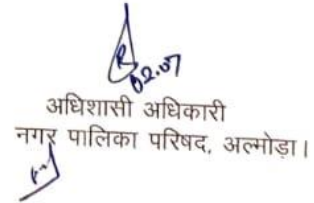 02.07
अधिशासी अधिकारी
नगर पालिका परिषद, अल्मोड़ा।